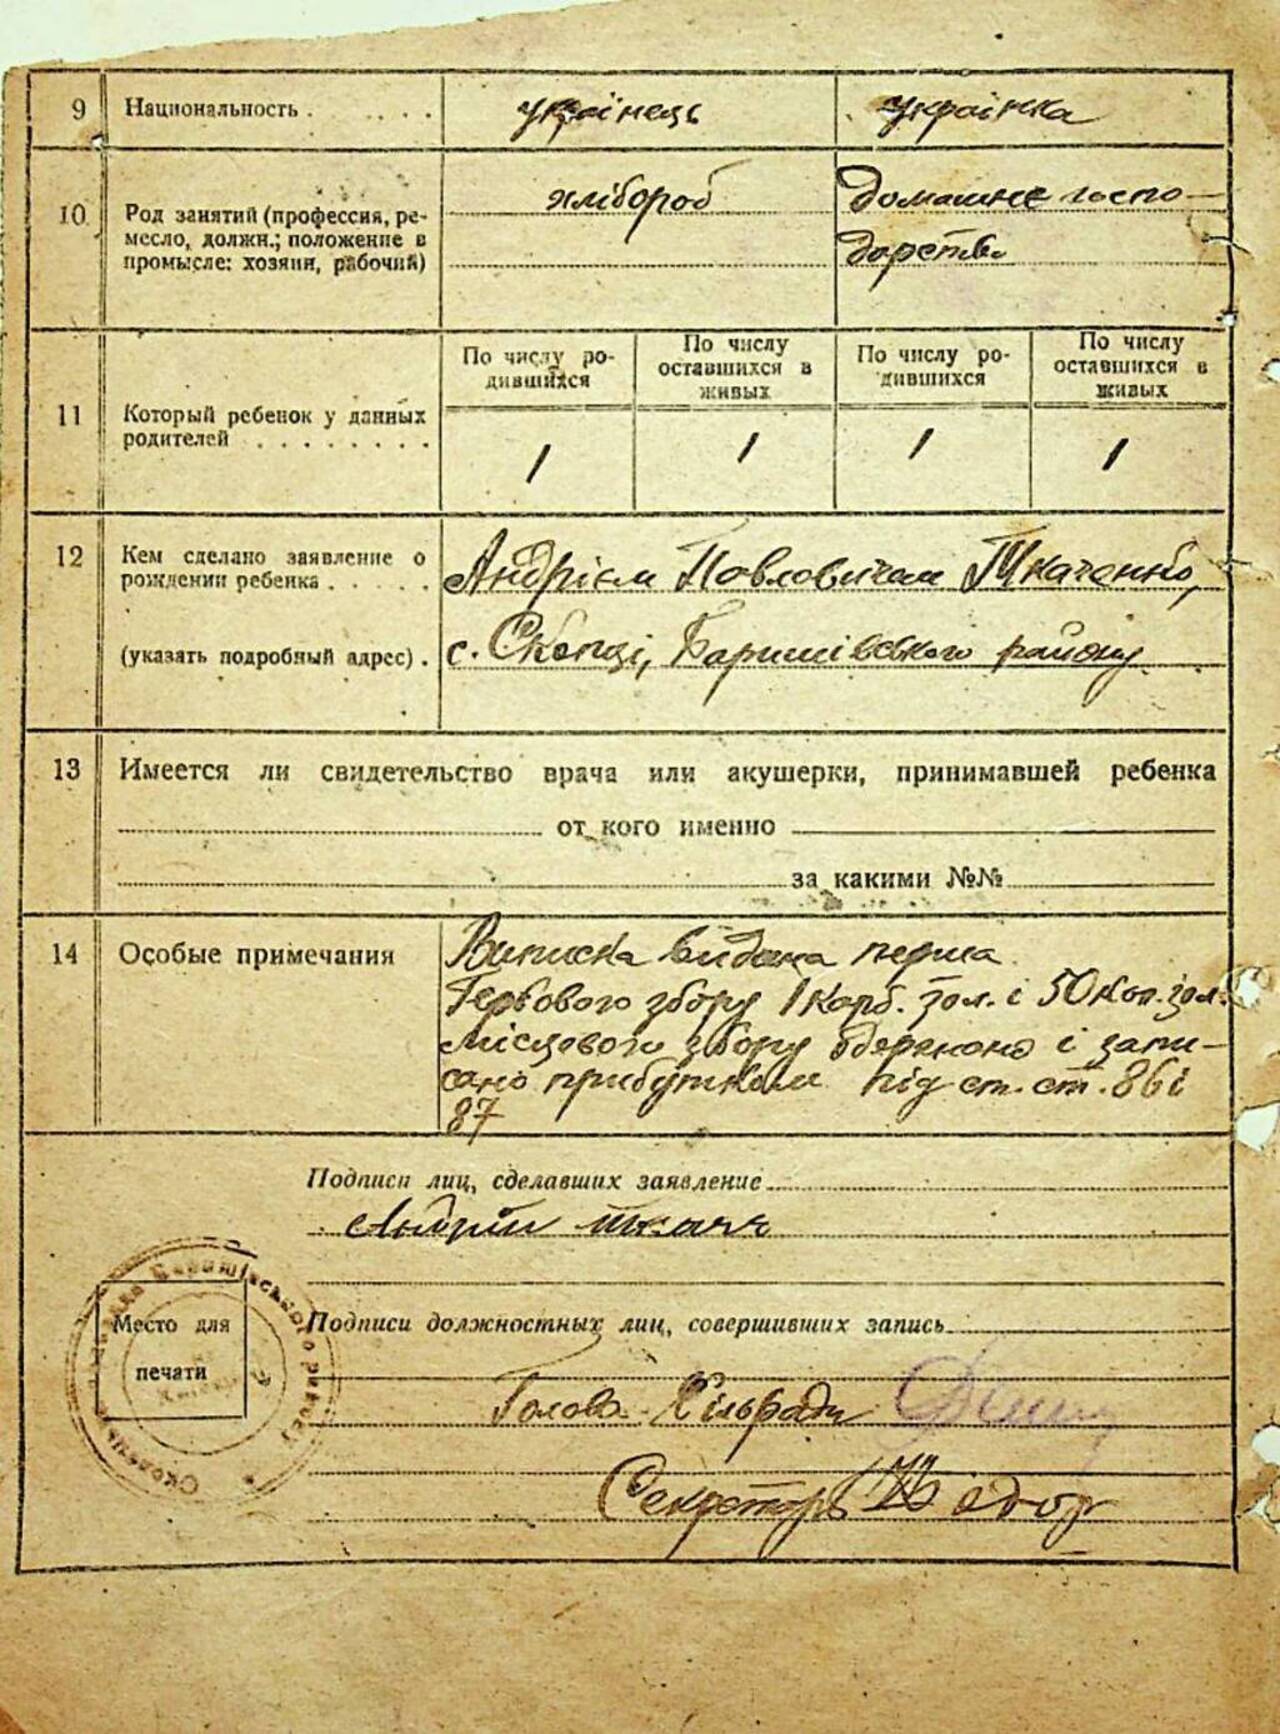 9 Национальность . . . . . українець українка
10 Род занятий (профессия, ре-
месло, должн.; положение в
промысле: хозяин, рабочий)
хлібороб
домашнє госпо-
дарство
11 Который ребенок у данных
родителей . . . . . . . .
По числу ро-
дившихся
По числу
оставшихся в
живых
По числу ро-
дившихся
По числу
оставшихся в
живых
1 1 1 1
12 Кем сделано заявление о
рождении ребенка . . . . .
(указать подробный адрес) .
Андрієм Павловичем Ткаченко,
с. Скопці, Баришівського району
13 Имеется ли свидетельство врача или акушерки, принимавшей ребенка
от кого именно
за какими №№
14 Особые примечания
Виписка видана перша
Гербового збору 1 карб. зол. і 50 коп. зол.
місцевого збору одержано і запи-
сано прибутком під ст. ст. 86 і
87
Подписи лиц, сделавших заявление
Андрій
Место для
печати
Подписи должностных лиц, совершивших запись
Голова сільради
Секретарь